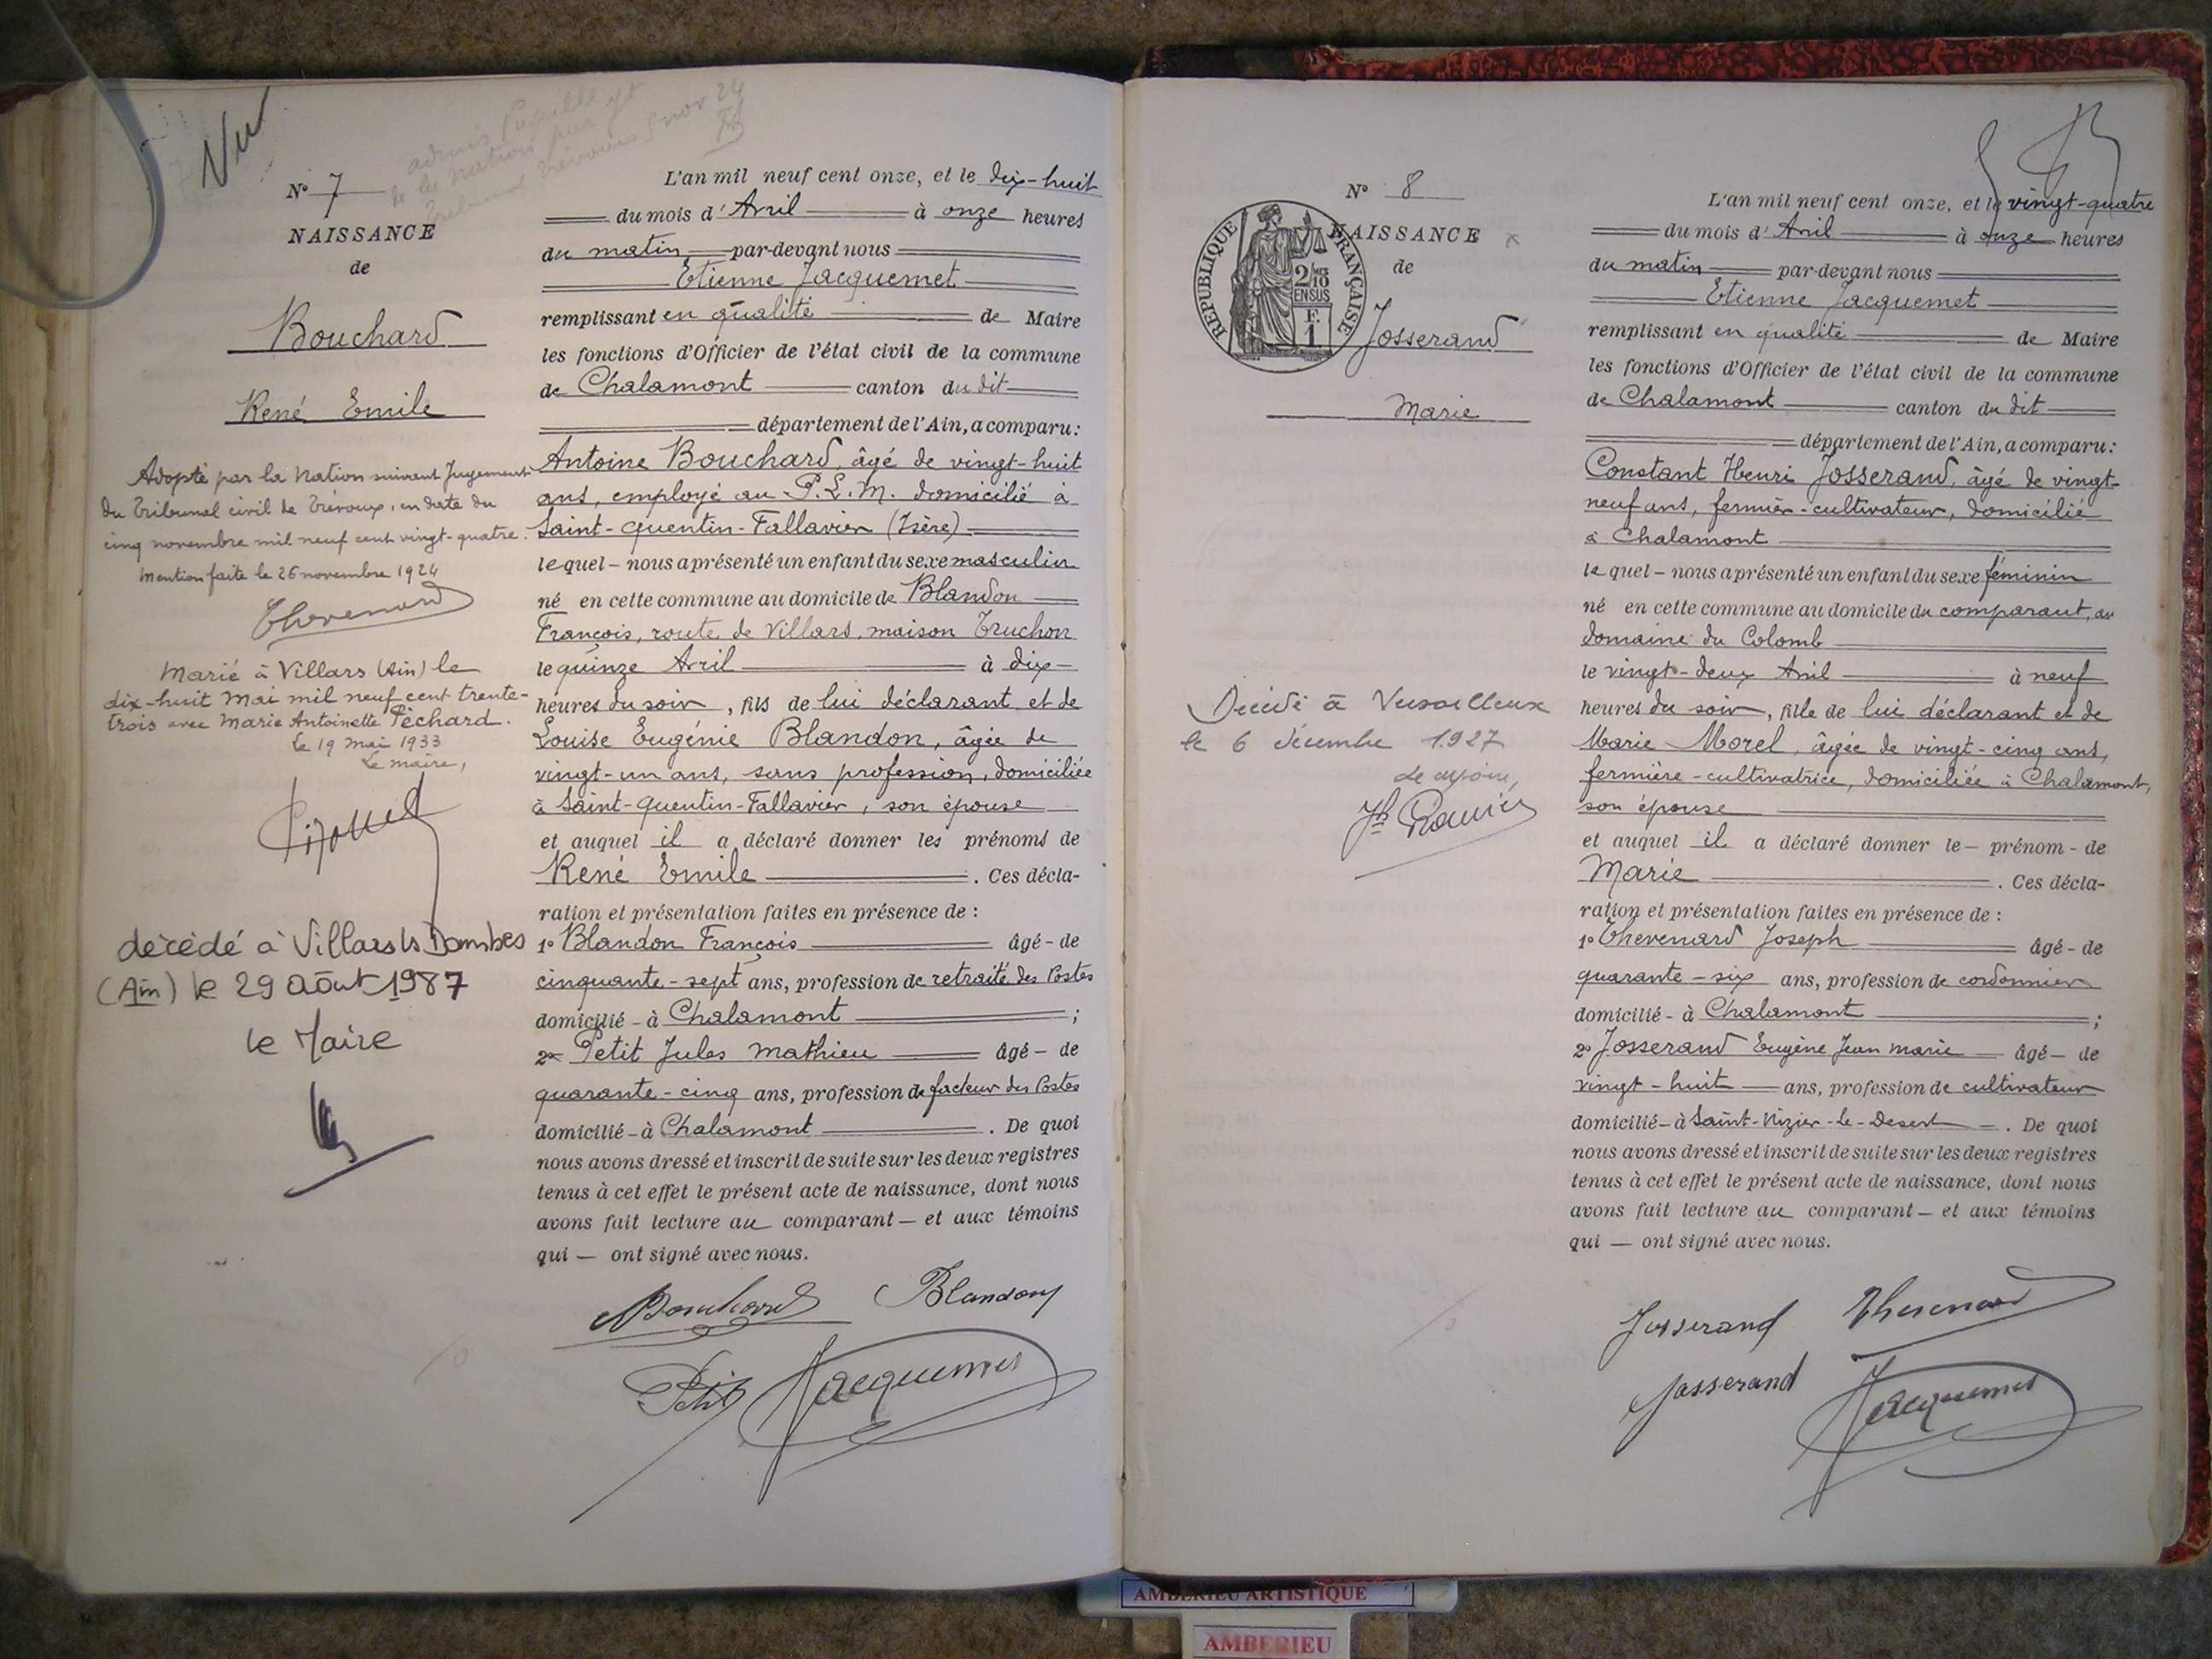 Vu
admis Pupille
de la Nation par jgt
tribunal Trévoux 5 nov 24
N° 7
NAISSANCE
de
Bouchard
René Emile
Adopté par la Nation suivant Jugement
du Tribunal civil de Trévoux, en date du
cinq novembre mil neuf cent vingt-quatre.
Mention faite le 26 novembre 1924
Thevenard
Marié à Villars (Ain) le
dix-huit Mai mil neuf cent trente-
trois avec Marie Antoinette Péchard.
Le 19 Mai 1933
Le maire,
décédé à Villars ls Dombes
(Ain) le 29 Août 1987
le Maire
L'an mil neuf cent onze, et le dix-huit
du mois d'Avril à onze heures
du matin par-devant nous
Etienne Jacquemet
remplissant en qualité de Maire
les fonctions d'Officier de l'état civil de la commune
de Chalamont canton du dit
département de l'Ain, a comparu:
Antoine Bouchard, âgé de vingt-huit
ans, employé au P.L.M. domicilié à
Saint-Quentin-Fallavier (Isère)
lequel - nous a présenté un enfant du sexe masculin
né en cette commune au domicile de Blandon
François, route de Villars, maison Truchon
le quinze Avril à dix-
heures du soir, fils de lui déclarant et de
Louise Eugénie Blandon, âgée de
vingt-un ans, sans profession, domiciliée
à Saint-Quentin-Fallavier, son épouse
et auquel il a déclaré donner les prénoms de
René Emile. Ces décla-
ration et présentation faites en présence de :
1° Blandon François âgé - de
cinquante-sept ans, profession de retraité des Postes
domicilié - à Chalamont ;
2° Petit Jules Mathieu âgé - de
quarante-cinq ans, profession de facteur des Postes
domicilié - à Chalamont. De quoi
nous avons dressé et inscrit de suite sur les deux registres
tenus à cet effet le présent acte de naissance, dont nous
avons fait lecture au comparant - et aux témoins
qui - ont signé avec nous.
Bouchard Blandon
Petit Jacquemet
N° 8
NAISSANCE
de
REPUBLIQUE FRANÇAISE
2/10 EN SUS
F. 1
Josserand
Marie
Décédé à Versailleux
le 6 décembre 1927
L'an mil neuf cent onze, et le vingt-quatre
du mois d'Avril à onze heures
du matin par-devant nous
Etienne Jacquemet
remplissant en qualité de Maire
les fonctions d'Officier de l'état civil de la commune
de Chalamont canton du dit
département de l'Ain, a comparu:
Constant Henri Josserand, âgé de vingt-
neuf ans, fermier-cultivateur, domicilié
à Chalamont
lequel - nous a présenté un enfant du sexe féminin
né en cette commune au domicile du comparant, au
domaine du Colomb
le vingt-deux Avril à neuf
heures du soir, fille de lui déclarant et de
Marie Morel, âgée de vingt-cinq ans,
fermière-cultivatrice, domiciliée à Chalamont,
son épouse
et auquel il a déclaré donner le - prénom - de
Marie. Ces décla-
ration et présentation faites en présence de :
1° Thevenard Joseph âgé - de
quarante-six ans, profession de cordonnier
domicilié - à Chalamont ;
2° Josserand Eugène Jean Marie âgé - de
vingt-huit ans, profession de cultivateur
domicilié - à Saint-Nizier-le-Desert. De quoi
nous avons dressé et inscrit de suite sur les deux registres
tenus à cet effet le présent acte de naissance, dont nous
avons fait lecture au comparant - et aux témoins
qui - ont signé avec nous.
Josserand Thevenard
Josserand Jacquemet
AMBERIEU ARTISTIQUE
AMBERIEU